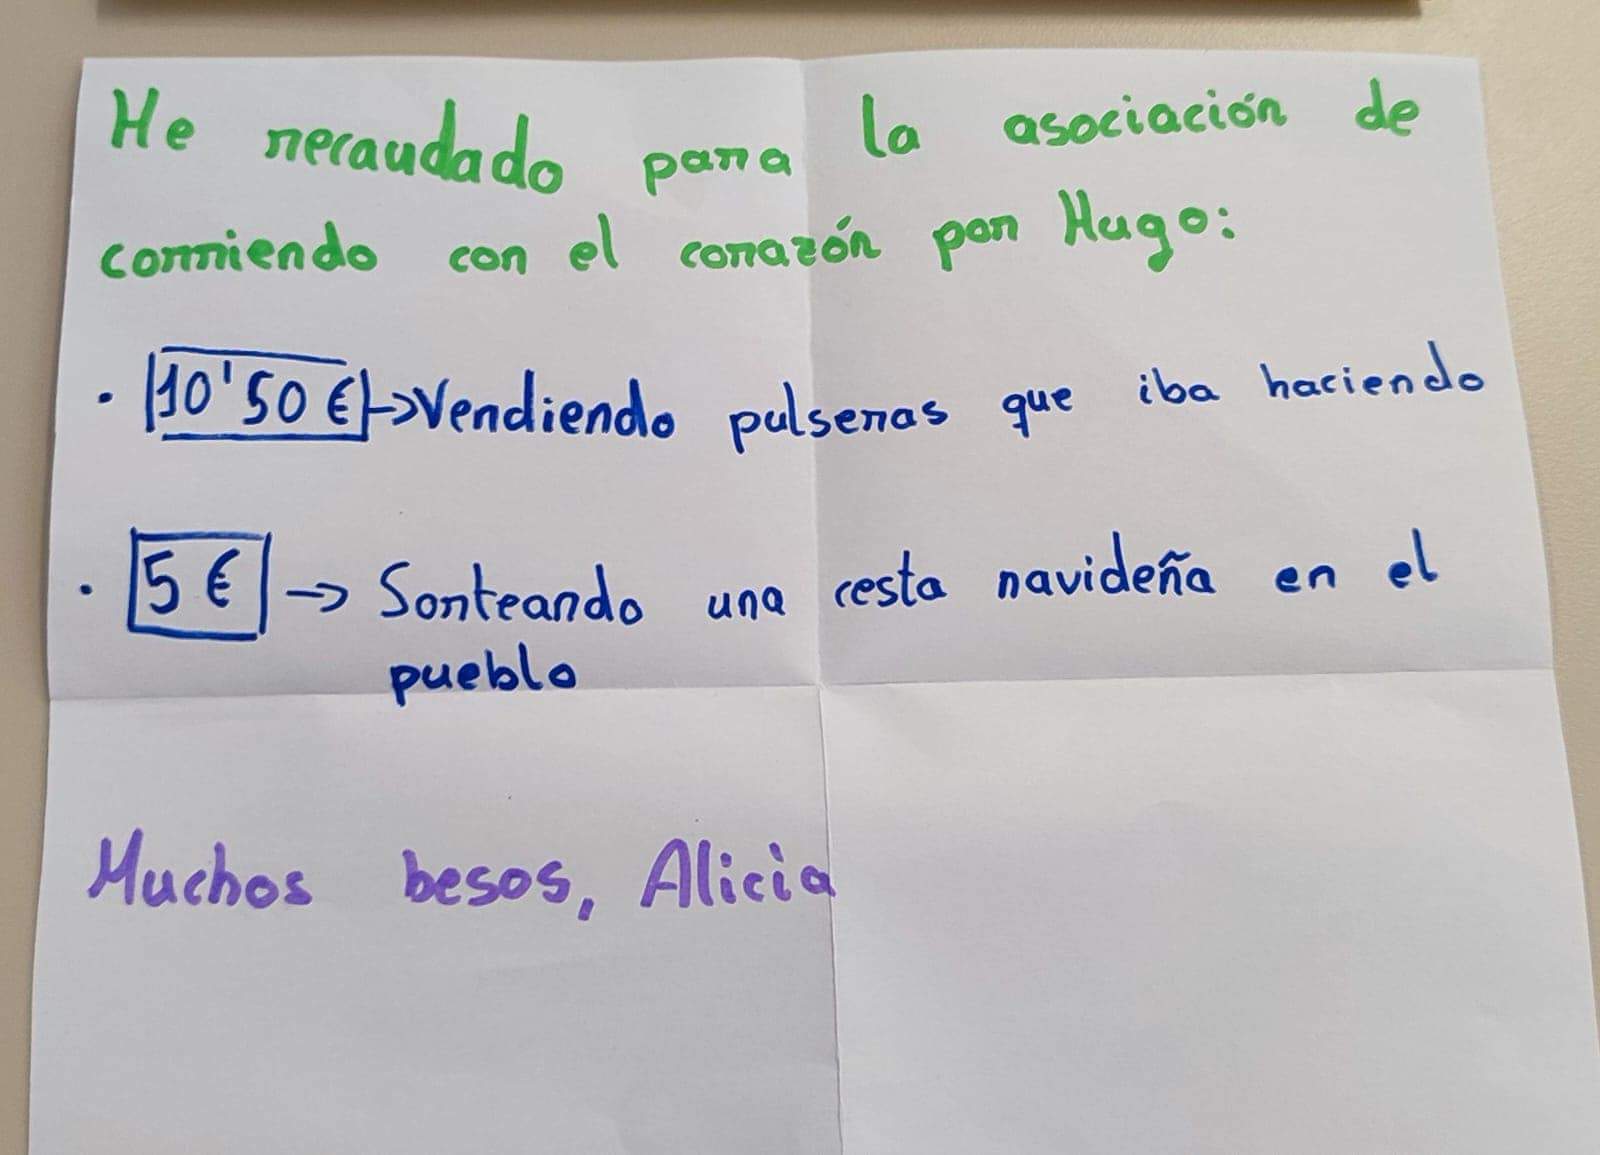 He recaudado para la asociación de
corriendo con el corazón por Hugo:
· 10'50 € → Vendiendo pulseras que iba haciendo
· 5 € → Sorteando una cesta navideña en el
pueblo
Muchos besos, Alicia